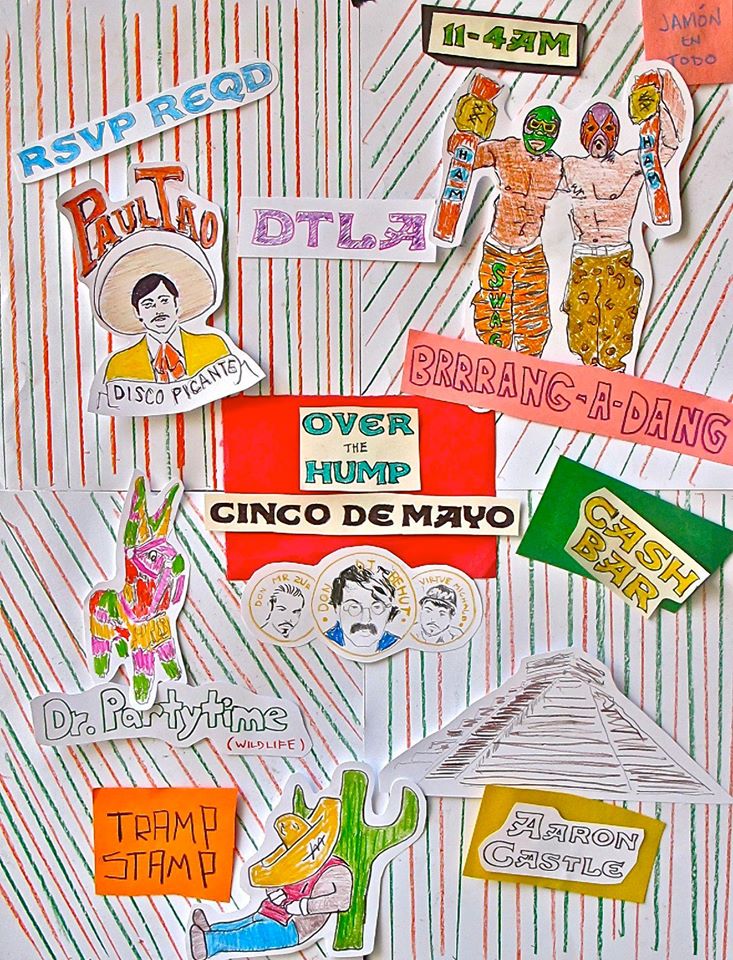 11-4AM
JAMÓN
EN
TODO
RSVP REQD
PAUL TAO
DISCO PICANTE
DTLA
HAM
HAM
SWAG
BRRRANG-A-DANG
OVER
THE
HUMP
CINCO DE MAYO
CASH
BAR
DON MR ZUF
DON
VIRTUE MICHALO
Dr. Partytime
(WILDLIFE)
TRAMP
STAMP
AARON
CASTLE